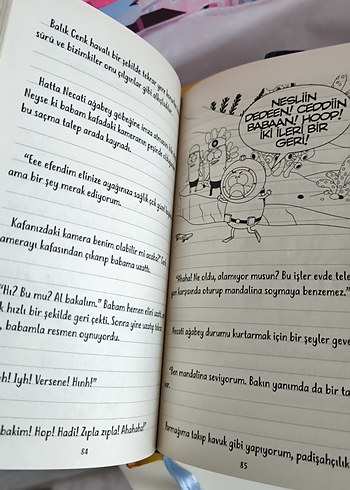 Balık Cenk havalı bir şekilde tekrar yere
sürü ve bizimkiler onu çılgınlar gibi alkışladı
Hatta Necati ağabey göbeğine imza atmasını
Neyse ki babam kafadaki kameranın peşinde
bu saçma talep arada kaynadı.
"Eee efendim elinize ayağınıza sağlık çok güzel
ama bir şey merak ediyorum.
Kafanızdaki kamera benim olabilir mi acaba?"
kamerayı kafasından çıkarıp babama uzattı.
"Hı? Bu mu? Al bakalım." Babam hemen elini
hızlı bir şekilde geri çekti. Sonra yine uzatıp
, babamla resmen oynuyordu.
Iyh! Versene! Hınh!"
bakim! Hop! Hadi! Zıpla zıpla! Ahahaha!"
84
NESLİİN
DEDEEN! CEDDİİN
BABAAN! HOOP!
İKİ İLERİ BİR
GERİ!
"Ahaha! Ne oldu, alamıyor musun? Bu işler evde
karşısında oturup mandalina soymaya benzemez."
Necati ağabey durumu kurtarmak için bir şeyler
"Ben mandalina seviyorum. Bakın yanımda da bir
Parmağıma takıp kavuk gibi yapıyorum, padişahçılık
85